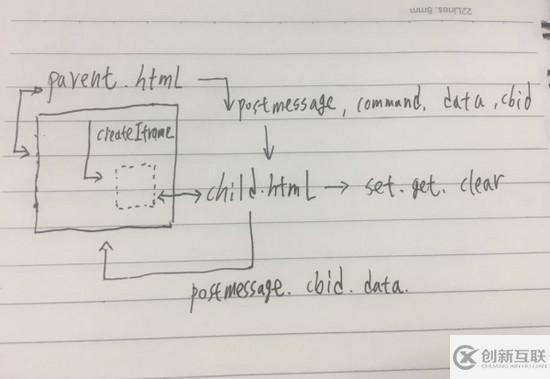 22Lines. 8mm
parent.html
postmessage, command, data, cbid
createIframe
child.html → set. get. clear
postmessage. cbid. data.
创新互联
CHUANG XIN HU LIAN